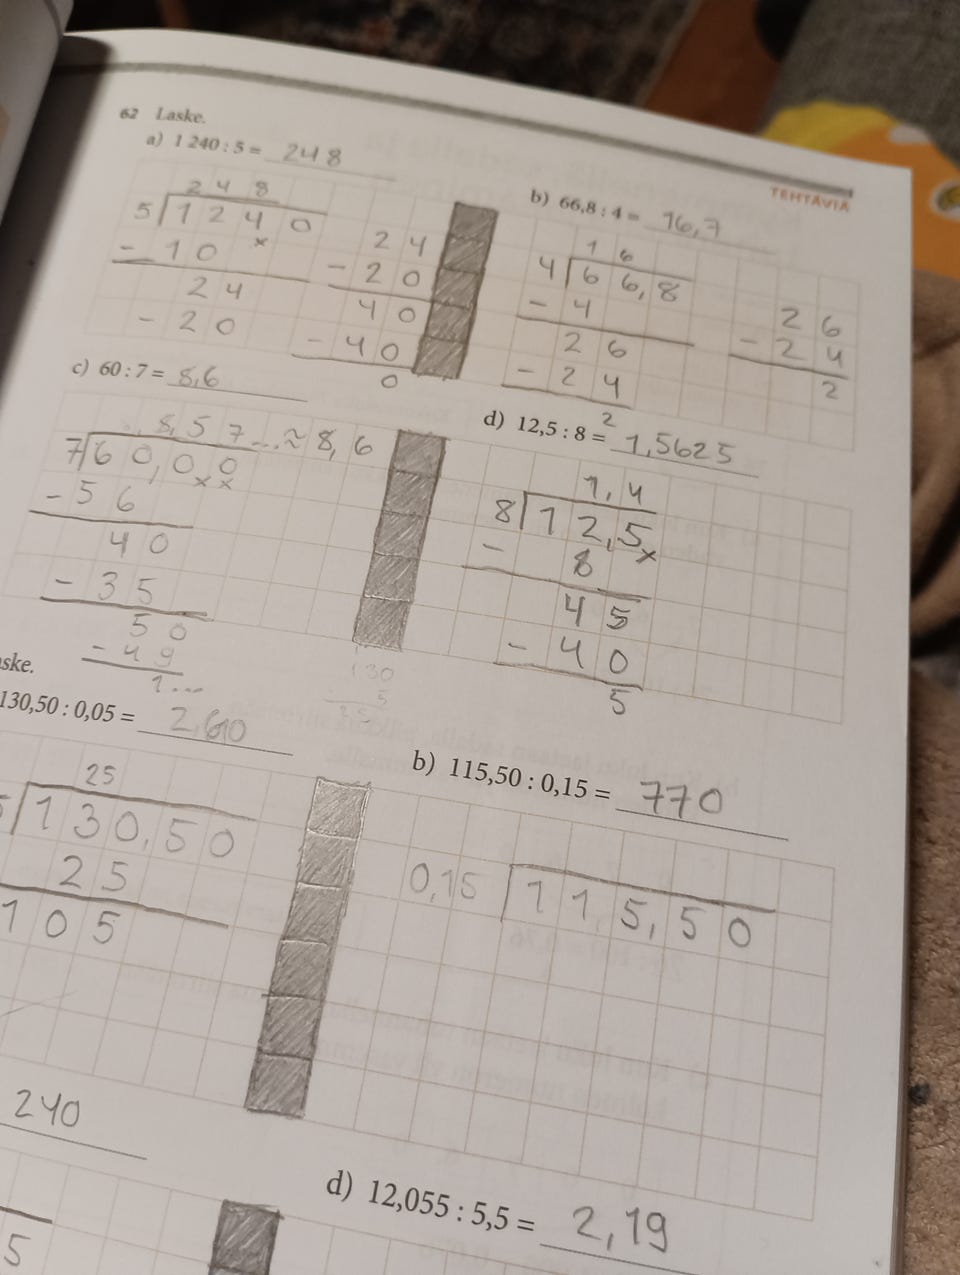 62 Laske.
a) 1 240 : 5 = 248
2 4 8
5 1 2 4 0
x
- 1 0
2 4
- 2 0
2 4
- 2 0
4 0
- 4 0
0
TEHTÄVIÄ
b) 66,8 : 4 = 16,7
1 6
4 6 6,8
- 4
2 6
- 2 4
2
2 6
- 2 4
2
c) 60 : 7 = 8,6
8,5 7 ... ≈ 8,6
7 6 0,0 0
x x
- 5 6
4 0
- 3 5
5 0
- 4 9
1 ...
d) 12,5 : 8 = 1,5625
1,4
8 1 2,5
x
- 8
4 5
- 4 0
5
ske.
130,50 : 0,05 = 2,610
25
5 1 3 0,5 0
2 5
1 0 5
130
5
b) 115,50 : 0,15 = 770
0,15 1 1 5,5 0
240
5
d) 12,055 : 5,5 = 2,19